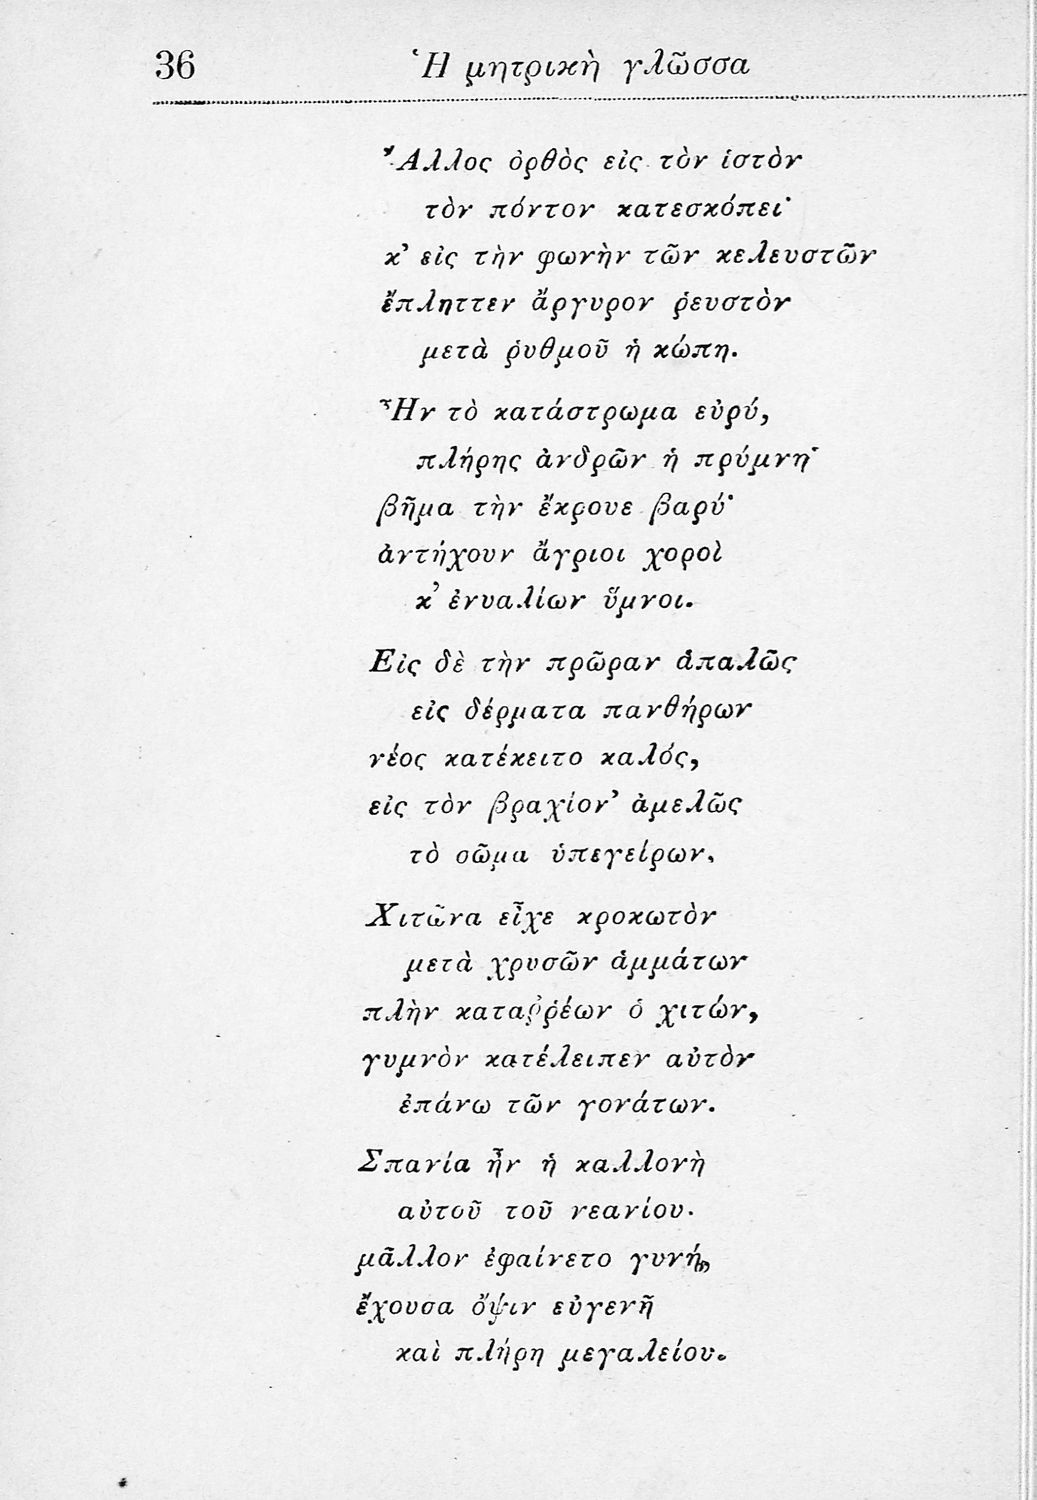 36
Ἡ μητρικὴ γλῶσσα
Ἄλλος ὀρθὸς εἰς τὸν ἱστὸν
τὸν πόντον κατεσκόπει·
κ’ εἰς τὴν φωνὴν τῶν κελευστῶν
ἔπληττεν ἄργυρον ῥευστὸν
μετὰ ῥυθμοῦ ἡ κώπη.
Ἦν τὸ κατάστρωμα εὐρύ,
πλήρης ἀνδρῶν ἡ πρύμνη·
βῆμα τὴν ἔκρουε βαρύ·
ἀντήχουν ἄγριοι χοροὶ
κ’ ἐνυαλίων ὕμνοι.
Εἰς δὲ τὴν πρῶραν ἁπαλῶς
εἰς δέρματα πανθήρων
νέος κατέκειτο καλός,
εἰς τὸν βραχίον’ ἀμελῶς
τὸ σῶμα ὑπεγείρων,
Χιτῶνα εἶχε κροκωτὸν
μετὰ χρυσῶν ἁμμάτων
πλὴν καταῤῥέων ὁ χιτών,
γυμνὸν κατέλειπεν αὐτὸν
ἐπάνω τῶν γονάτων.
Σπανία ἦν ἡ καλλονὴ
αὐτοῦ τοῦ νεανίου·
μᾶλλον ἐφαίνετο γυνή,
ἔχουσα ὄψιν εὐγενῆ
καὶ πλήρη μεγαλείου.